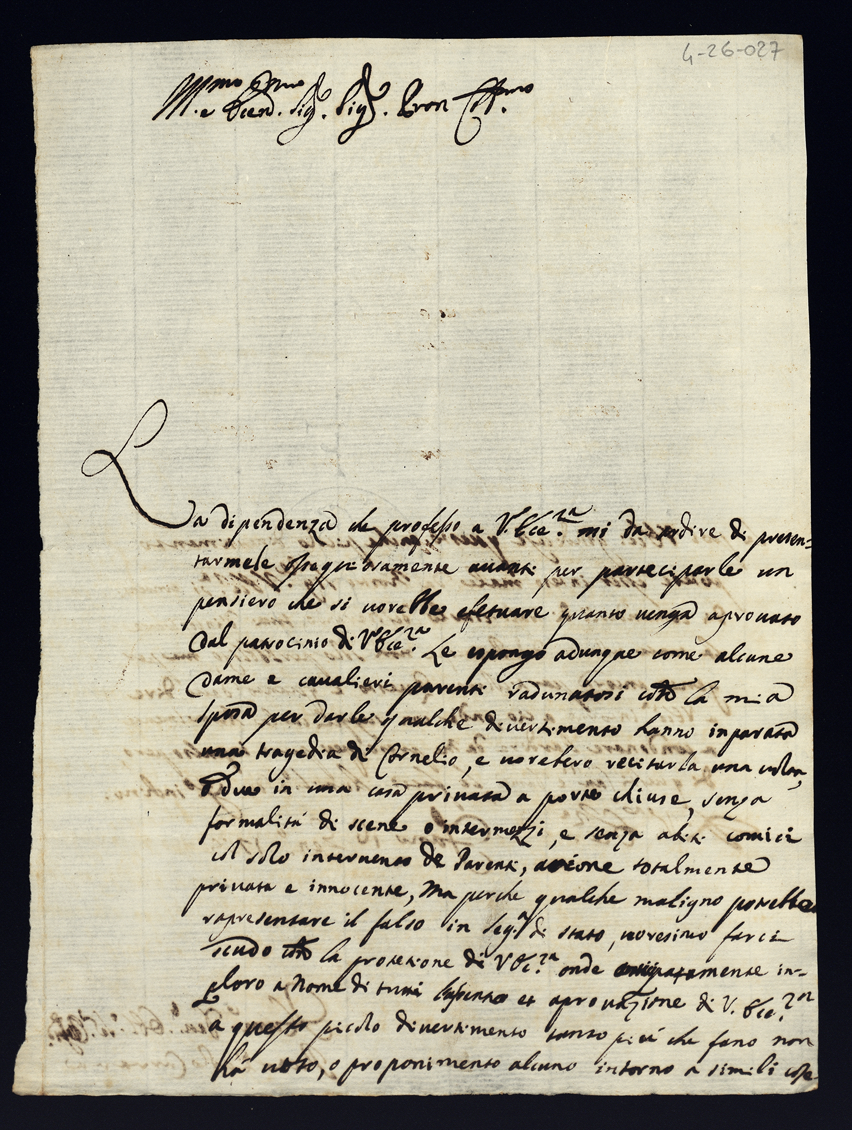 4-26-027
Ill.mo
e Sig.r Sig.r Pron Col.mo
La dipendenza che professo a V. Ecc.za mi dà ardire di presen=
tarmele ossequiosamente auanti per parteciparle un
pensiero che si uorebbe efetuare quanto uenga aprouato
dal patrocinio di V. Ecc.za Le espongo adunque come alcune
Dame e caualieri parenti radunatosi con la mia
sposa per darle qualche diuertimento hanno inparata
una tragedia di Cornelio, e uorebero recitarla una uolta,
o due in una casa priuata a porte chiuse, senza
formalità di scene o intermezzi, e senza abiti comici
col solo interuento de Parenti, azione totalmente
priuata e innocente, Ma perche qualche maligno potrebbe
rapresentare il falso in Seg.a di stato, uoressimo farci
scudo con la protezione di V. Ecc.za onde in=
ploro a Nome di tutti et aprouazione di V. Ecc.za
a questo picolo diuertimento tanto più che fano non
hà uoto, o proponimento alcuno intorno a simili cose